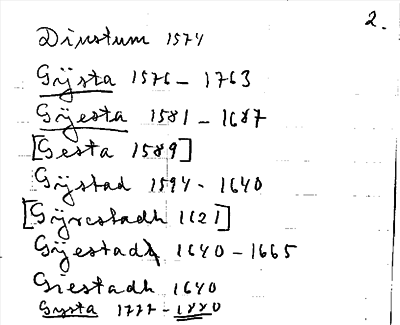 2.
Dinstum 1574
Gÿsta 1576 - 1763
Gÿesta 1581 - 1687
[Gesta 1589]
Gÿstad 1594 - 1640
[Gÿrestadh 1621]
Gÿestadh 1640 - 1665
Giestadh 1640
Gysta 1777 - 1880